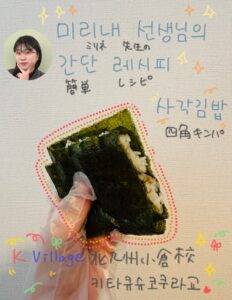 미리내 선생님의
ミリネ 先生の
간단 레시피
簡単 レシピ
사각김밥
四角キンパ
K Village 北九州小倉校
키타큐슈코쿠라교